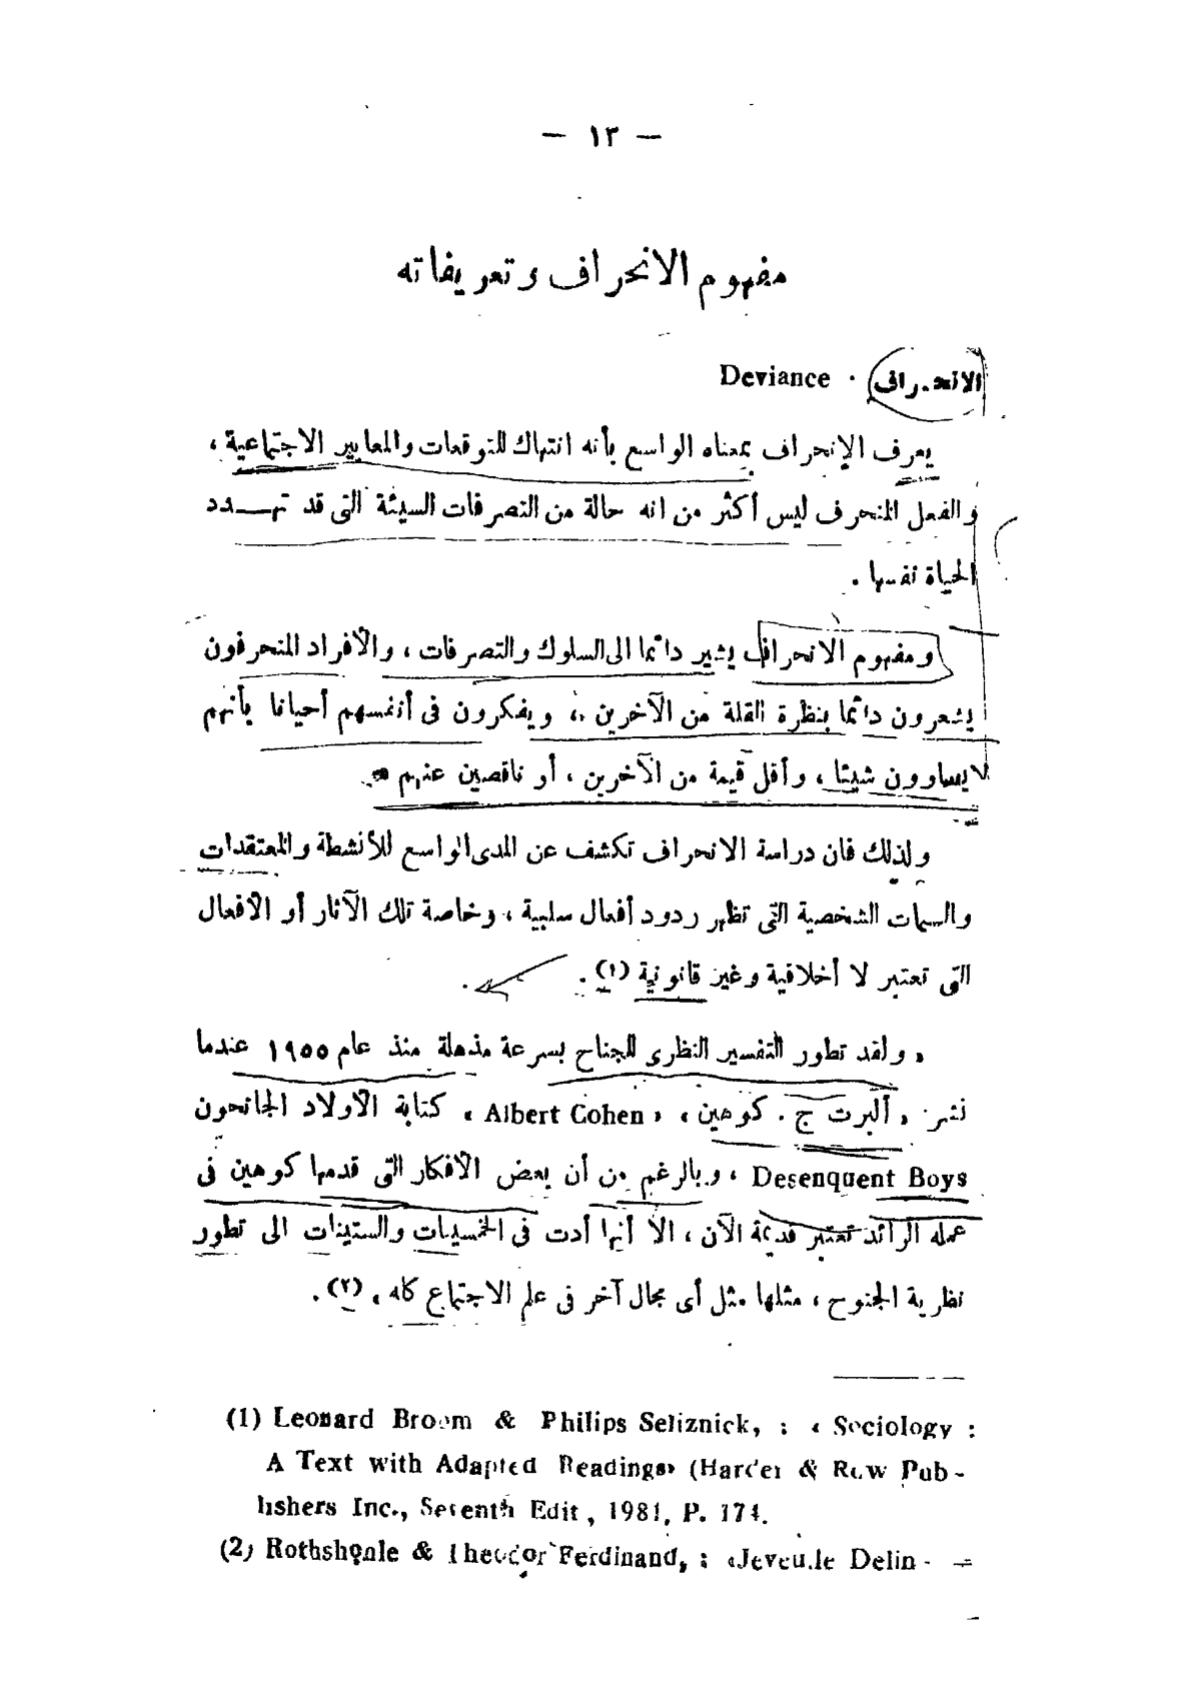 — ١٣ —
مفهوم الانحراف وتعريفاته
الانحراف · Deviance
يعرف الإنحراف بمعناه الواسع بأنه انتهاك للتوقعات والمعايير الاجتماعية ،
والفعل المنحرف ليس أكثر من انه حالة من التصرفات السيئة التى قد تهدد
الحياة نفسها .
ومفهوم الانحراف يشير دائما الى السلوك والتصرفات ، والأفراد المنحرفون
يشعرون دائما بنظرة القلة من الآخرين ، ويفكرون فى أنفسهم أحيانا بأنهم
لا يساوون شيئا ، وأقل قيمة من الآخرين ، أو ناقصين عنهم
ولذلك فان دراسة الانحراف تكشف عن المدى الواسع للأنشطة والمعتقدات
والسمات الشخصية التى تظهر ردود أفعال سلبية ، وخاصة تلك الآثار أو الأفعال
التى تعتبر لا أخلاقية وغير قانونية (١) .
« ولقد تطور التفسير النظرى للجناح بسرعة مذهلة منذ عام ١٩٥٥ عندما
نشر « ألبرت ج . كوهين » « Albert Cohen » كتابة الأولاد الجانحون
Desenquent Boys ، وبالرغم من أن بعض الأفكار التى قدمها كوهين فى
عمله الرائد تعتبر قديمة الآن ، الا أنها أدت فى الخمسينات والستينات الى تطور
نظرية الجنوح ، مثلها مثل أى مجال آخر فى علم الاجتماع كله » (٢) .
(1) Leonard Broom & Philips Seliznick, : « Sociology :
A Text with Adapted Readings» (Harder & Row Pub-
lishers Inc., Seventh Edit , 1981, P. 174.
(2) Rothshonle & Theodor Ferdinand, : «Jeveu.le Delin- =